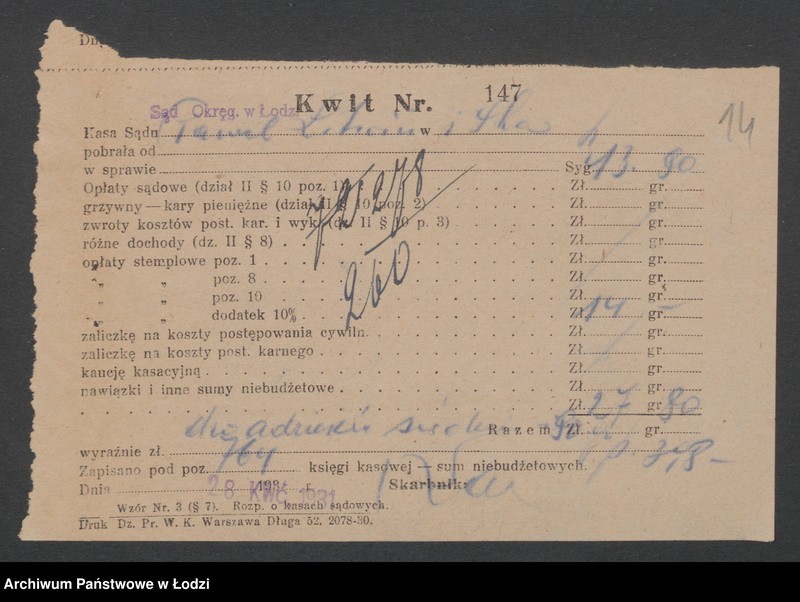 Kwit Nr. 147
14
Sąd Okręg. w Łodzi
Kasa Sądu w
pobrała od
w sprawie Syg.
13.90
Opłaty sądowe (dział II § 10 poz. 1) Zł. gr.
grzywny — kary pieniężne (dział II § 10 poz. 2) Zł. gr.
zwroty kosztów post. kar. i wyk. (dz. II § 10 p. 3) Zł. gr.
różne dochody (dz. II § 8) Zł. gr.
opłaty stemplowe poz. 1 Zł. gr.
„ „ poz. 8 Zł. gr.
„ „ poz. 10 Zł. gr.
„ „ dodatek 10% Zł. 14 gr. —
260
zaliczkę na koszty postępowania cywiln. Zł. gr.
zaliczkę na koszty post. karnego Zł. gr.
kaucję kasacyjną Zł. gr.
nawiązki i inne sumy niebudżetowe Zł. gr.
Zł. 27 gr. 90
Razem Zł. gr.
wyraźnie zł.
Zapisano pod poz. 764 księgi kasowej — sum niebudżetowych.
Dnia 193 r. Skarbnik:
28 KWI 1931
Wzór Nr. 3 (§ 7). Rozp. o kasach sądowych.
Druk Dz. Pr. W. K. Warszawa Długa 52. 2078-30.
Archiwum Państwowe w Łodzi